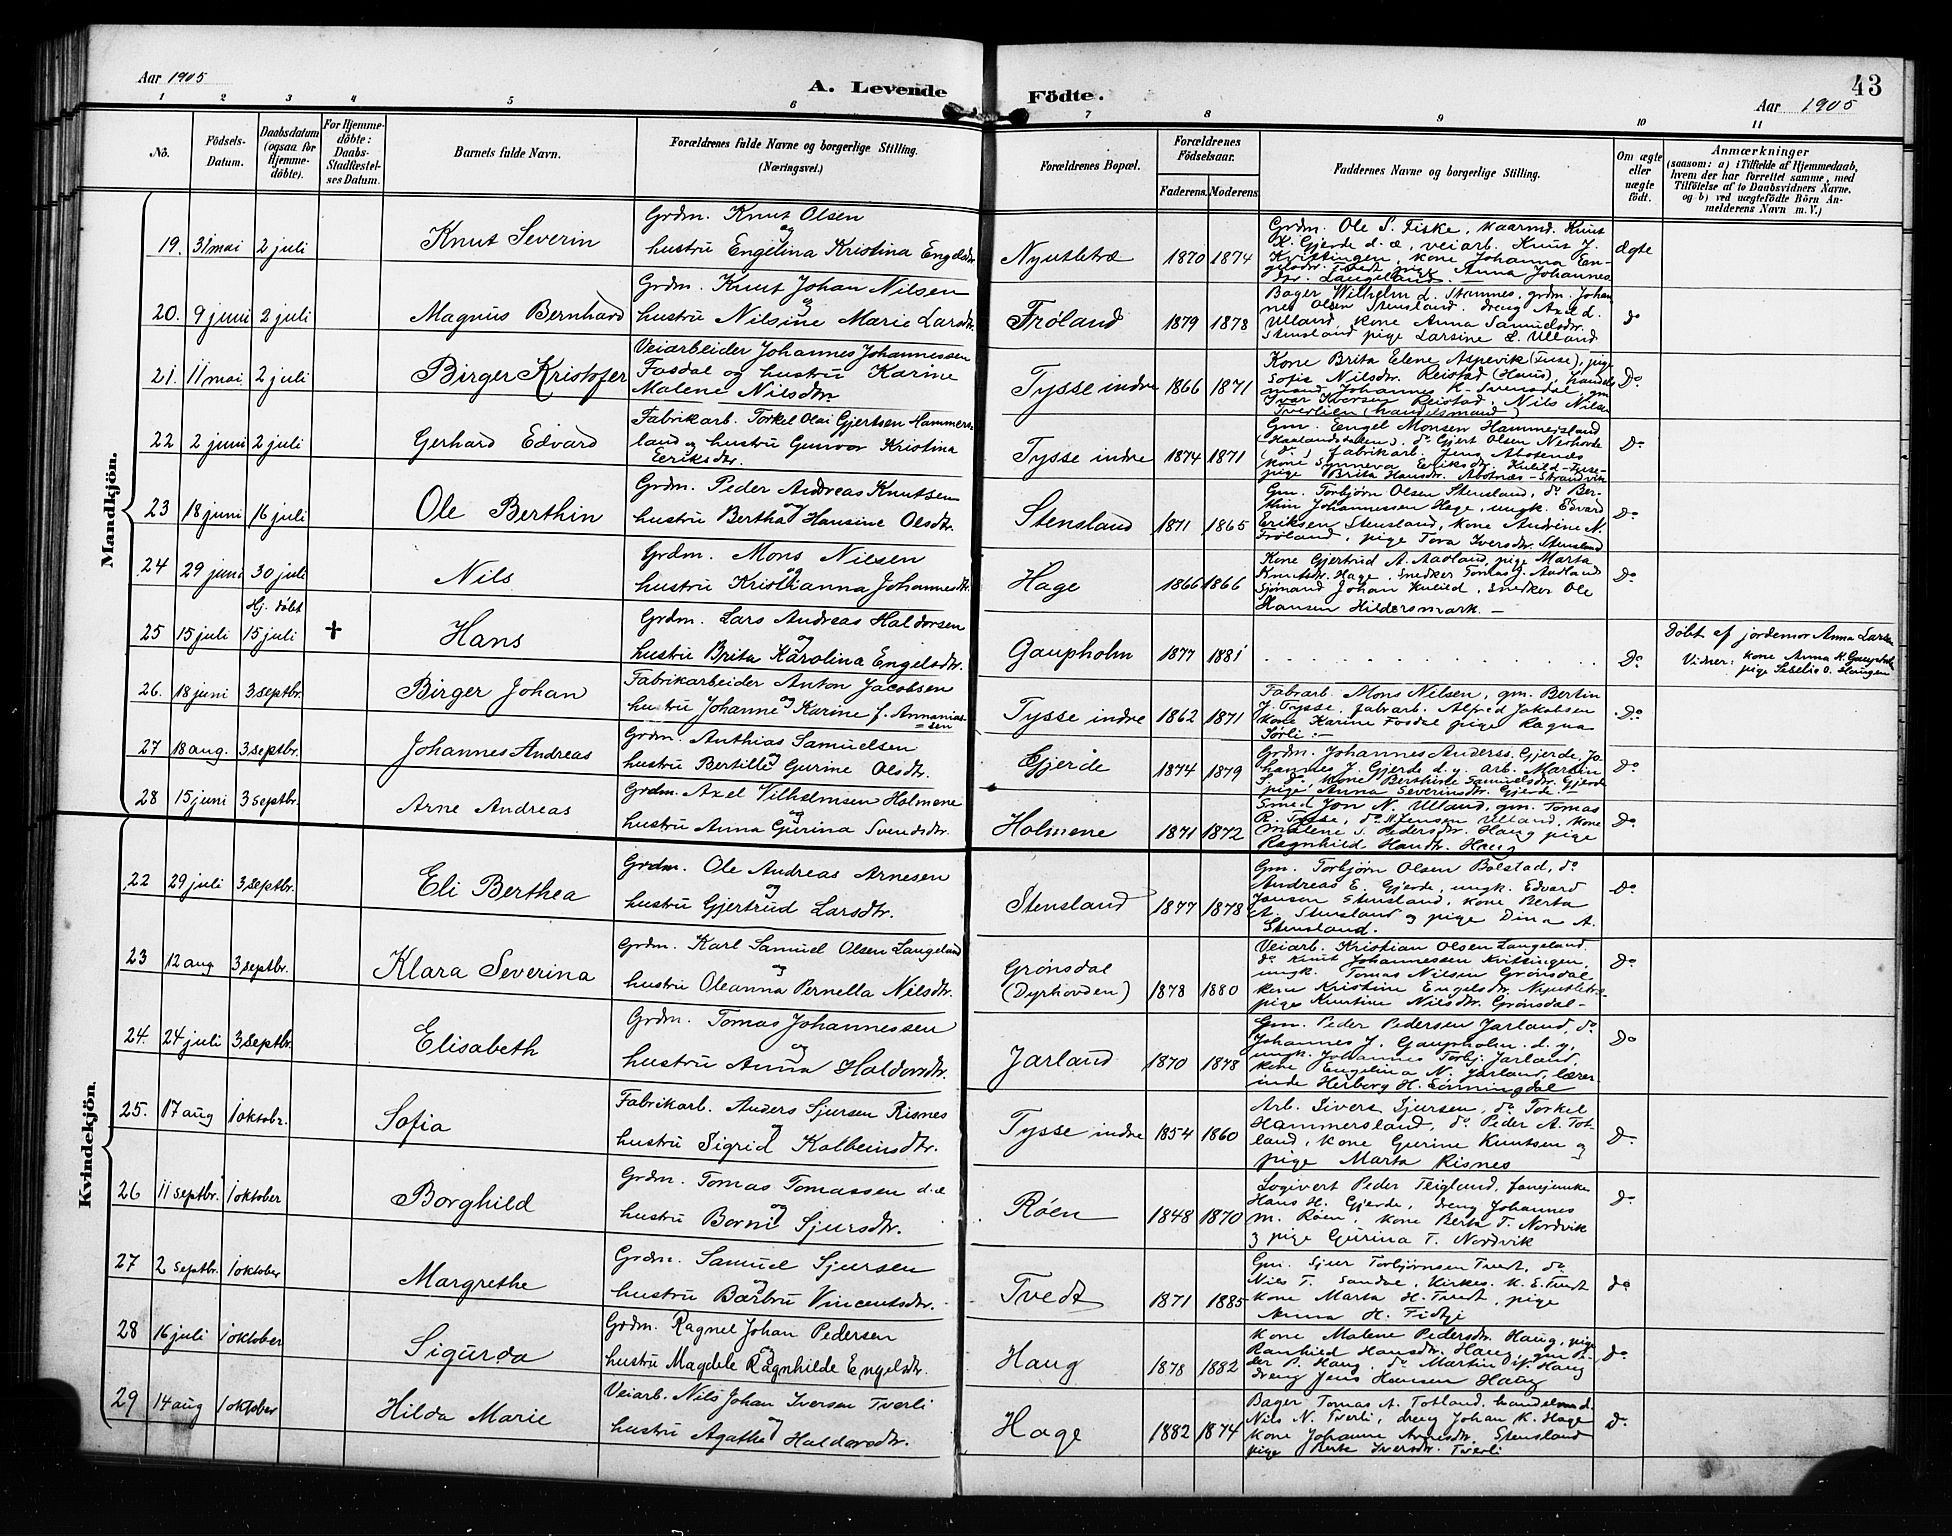 Aar 1905
A. Levende Födte.
43
Aar 1905
1 2 3 4 5 6 7 8 9 10 11
Nö.
Födsels-Datum.
Daabsdatum (ogsaa for Hjemme-döbte).
For Hjemme-döbte: Daabs-Stadfæstel-ses Datum.
Barnets fulde Navn.
Forældrenes fulde Navne og borgerlige Stilling. (Næringsvei.)
Forældrenes Bopæl.
Forældrenes Födselsaar.
Faderens. Moderens.
Faddernes Navne og borgerlige Stilling.
Om ægte eller uægte födt.
Anmærkninger
(saasom: a) i Tilfælde af Hjemmedaab, hvem der har forrettet samme, med Tilföielse af to Daabsvidners Navne, og b) ved uægtefödte Börn Anmelderens Navn m. V.)
Mandkjön.
19. 31 mai 2 juli Knut Severin
Grdm. Knut Olsen
og
hustru Engelina Kristina Engelsdtr.
Nyutletræ 1870 1874
Grdm. Ole S. Fiske, kaarmd. Knut
K. Gjerde d. æ, veiarb. Knut J.
Kvittingen, kone Johanna En-
gelsdtr. Tvedt pige Anna Johannes
dtr. Langeland.
ægte
20. 9 juni 2 juli Magnus Bernhard
Grdm. Knut Johan Nilsen
og
hustru Nilsine Marie Larsdtr.
Frøland 1879 1878
Bager Wilhelm d. Stamnes, grdm. Johan
nes Olsen Stensland. dreng Axel d.
Ulland, kone Anna Samuelsdtr.
Stensland pige Larsine L. Ulland
do
21. 11 mai 2 juli Birger Kristofer
Veiarbeider Johannes Johannessen
Fosdal og hustru Karine
Malene Nilsdtr.
Tysse indre 1866 1871
Kone Brita Elene Aspevik (Fuse), pig
Sofie Nilsdtr. Reistad (Haus), handels
mand Johannes K. Svensdal, gm
Ivar Iversen Reistad, Nils Nilsen
Tverlien (handelsmand)
Do
22 2 juni 2 juli Gerhard Edvard
Fabrikarb. Torkel Olai Gjertsen Hammers-
land og hustru Gunvor Kristina
Eeriksdtr.
Tysse indre 1874 1871
Gm. Engel Monsen Hammersland
(Haalandsdalen), do Gjert Olsen Nerhovde
(do) fabrikarb. Jens Abotenæs
kone Synneva Eeriksdtr. Kulild-Fuse-
pige Brita Hansdtr. Abotnæs-Strandvik
Do
23 18 juni 16 juli Ole Berthin
Grdm. Peder Andreas Knutsen
og
hustru Bertha Hansine Olsdtr.
Stensland 1871 1865
Gm. Torbjörn Olsen Stensland, do Ber-
thin Johannessen Hage, ungk. Edvard
Eriksen Stensland, kone Andrine N.
Frøland, pige Tora Iversdtr. Stensland
Do
24 29 juni 30 juli Nils
Grdm. Mons Nilsen
og
hustru Kristianna Johannesdtr.
Hage 1866 1866
Kone Gjertrud A. Aadland, pige Marta
Knutsdtr. Hage, Snedker Tomas J. Aadland
Sjömand Johan Kulild, snedker Ole
Hansen Hildersmark. –
Do
25 15 juli Hj. døbt 15 juli + Hans
Grdm. Lars Andreas Haldorsen
og
hustru Brita Karolina Engelsdtr.
Gaupholm 1877 1881
Do
Döbt af jordemor Anna Larsen
Vidner: kone Anna K. Gaupholm
pige Sebelie O. Haugen
26. 18 juni 3 septbr. Birger Johan
Fabrikarbeider Anton Jacobsen
og
hustru Johanne Karine f. Annanias-
sen
Tysse indre 1862 1871
Fabrarb. Mons Nilsen, gm. Bertin
J. Tysse, fabrarb. Alfred Jakobsen
kone Karine Fosdal pige Ragna
Sørli –
Do
27 18 aug. 3 septbr. Johannes Andreas
Grdm. Anthias Samuelsen
og
hustru Bertille Gurine Olsdtr.
Gjerde 1874 1879
Grdm. Johannes Anderss. Gjerde, Jo
hannes J. Gjerde d. y. arb. Martin
S. do kone Berthine Samuelsdtr Gjerde
pige Anna Severinsdtr. Gjerde –
Do
28 15 juni 3 septbr. Arne Andreas
Grdm. Axel Vilhelmsen Holmene
og
hustru Anna Gurina Svendsdtr.
Holmene 1871 1872
Smed Jon N. Ulland, gm. Tomas
R. Tysse, do Ulland, kone
Malene S. Pedersdtr. Haug pige
Ragnhild Hansdtr. Haug
Do
Kvindekjön.
22 29 juli 3 septbr. Eli Berthea
Grdm. Ole Andreas Arnesen
og
hustru Gjertrud Larsdtr.
Stensland 1877 1878
Gm. Torbjørn Olsen Bolstad, do
Andreas E. Gjerde, ungk. Edvard
Jansen Stensland, kone Berta
A. Stensland og pige Dina A.
Stensland.
Do
23 12 aug 3 septbr. Klara Severina
Grdm. Karl Samuel Olsen Langeland
og
hustru Oleanna Pernella Nilsdtr.
Grønsdal
(Dyrhovden) 1878 1880
Veiarb. Kristian Olsen Langeland.
do Knut Johannessen Kvittingen,
ungk. Tomas Nilsen Grønsdal
kone Kristine Engelsdtr. Nyutletræ
pige Knutine Nilsdtr. Grønsdal–
Do
24. 24 juli 3 septbr. Elisabeth
Grdm. Tomas Johannessen
og
hustru Anna Haldorsdtr.
Jarland 1870 1878
Gm. Peder Pedersen Jarland, do
Johannes J. Gaupholm d. y,
ungk. Johannes Torbj. Jarland,
kone Engelina N. Jarland, lærer-
inde Herborg H. Lønningdal
Do
25. 17 aug 1 oktobr. Sofia
Fabrikarb. Anders Sjursen Risnes
og
hustru Sigrid Kolbeinsdtr.
Tysse indre 1854 1860
Arb. Sivert Sjursen, do Torkel
Hammersland, do Peder A. Tot-
land, kone Gurine Knutsen og
pige Marta Risnes
Do
26 11 septbr. 1 oktober Borghild
Grdm. Tomas Tomassen d. æ
og
hustru Borni Sjursdtr.
Røen 1848 1870
Logivert Peder Teigland, fanejunker
Hans H. Gjerde, dreng Johannes
M. Røen, kone Berta T. Nordvik
og pige Gurina T. Nordvik
Do
27 2 septbr. 1 oktober Margrethe
Grdm. Samuel Sjursen
og
hustru Barbru Vincentsdtr.
Tvedt 1871 1885
Gm. Sjur Torbjørnsen Tvedt, do
Nils T. Sandal, Kirkes. K. E. Tvedt
kone Marta H. Tvedt, pige
Anna H. Fidtje
Do
28 16 juli 1 oktober Sigurda
Grdm. Ragnel Johan Pedersen
og
hustru Magdele Ragnhilde Engelsdtr.
Haug 1878 1882
Kone Malene Pedersdtr. Haug, pige
Ranhild Hansdtr. Haug, gm Pe-
der P. Haug, do Martin N. Haug
dreng Jens Hansen Haug
Do
29 14 aug 1 oktober Hilda Marie
Veiarb. Nils Johan Iversen Tverli
og
hustru Agathe Haldorsdtr.
Hage 1882 1874
Bager Tomas A. Totland, handelsmd.
Nils N. Tverli, dreng Johan K. Hage
kone Johanne Arnesdtr. Stensland
pige Berta Iversdtr. Tverli
Do